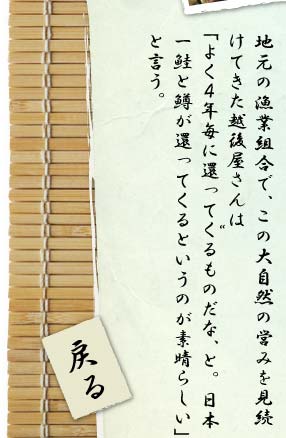 地元の漁業組合で、この大自然の営みを見続
けてきた越後屋さんは
「よく4年毎に還ってくるものだな、と。日本
一鮭と鱒が還ってくるというのが素晴らしい」
と言う。
戻る